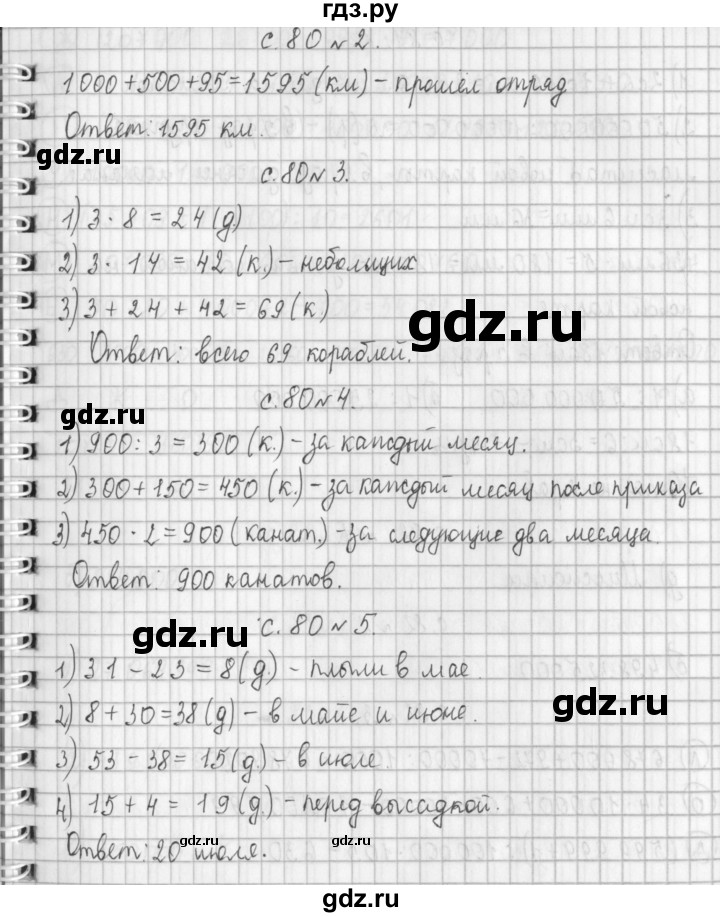 гдз.ру
с. 80 № 2.
1000+500+95=1595 (км) – прошёл отряд
Ответ: 1595 км.
gdz.ru
с. 80 № 3.
1) 3 · 8 = 24 (д.)
2) 3 · 14 = 42 (к.) – небольших
3) 3 + 24 + 42 = 69 (к)
gdz.ru
Ответ: всего 69 кораблей.
с. 80 № 4.
gdz.ru
1) 900 : 3 = 300 (к.) – за каждый месяц.
2) 300 + 150 = 450 (к.) – за каждый месяц после приказа
3) 450 · 2 = 900 (канат.) – за следующие два месяца.
Ответ: 900 канатов.
с. 80 № 5.
gdz.ru
1) 31 – 23 = 8 (д.) – плыли в мае
2) 8 + 30 = 38 (д) – в майе и июне.
gdz.ru
3) 53 – 38 = 15 (д.) – в июле
4) 15 + 4 = 19 (д.) – перед высадкой.
gdz.ru
gdz.ru
Ответ: 20 июля.
gdz.ru